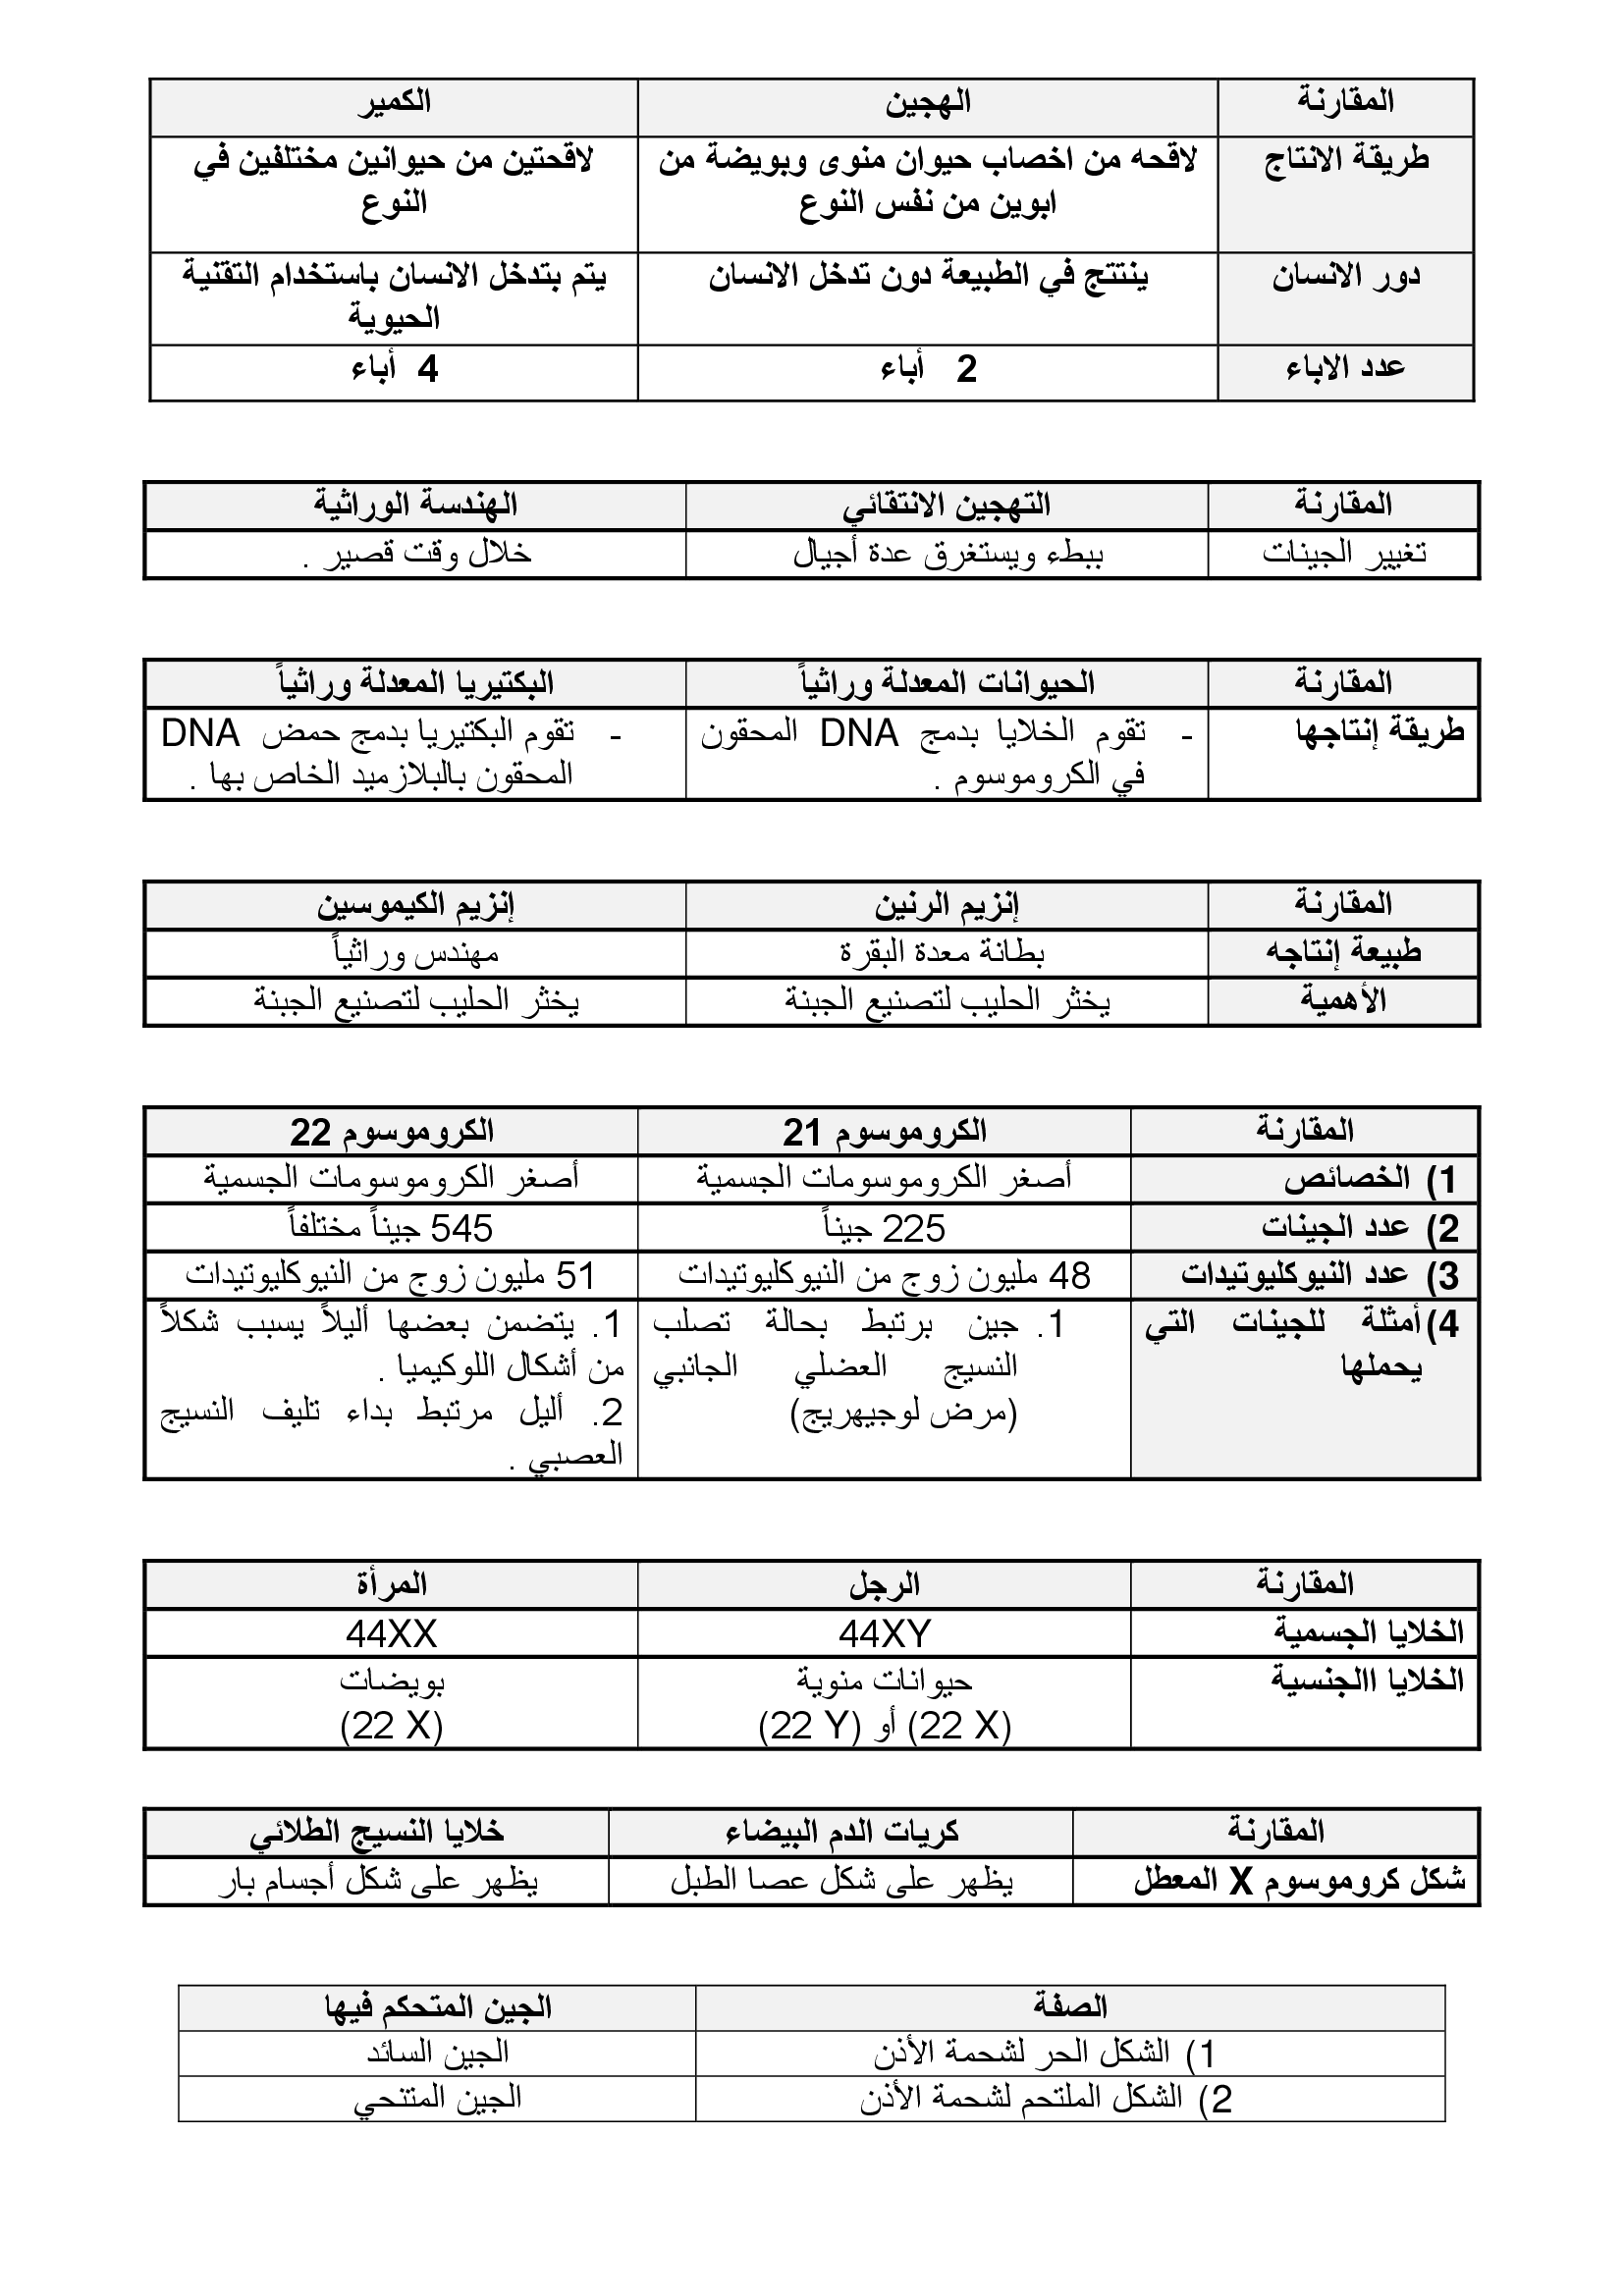 المقارنة الهجين الكمير
طريقة الانتاج لاقحه من اخصاب حيوان منوى وبويضة من لاقحتين من حيوانين مختلفين في
ابوين من نفس النوع النوع
دور الانسان ينتتج في الطبيعة دون تدخل الانسان يتم بتدخل الانسان باستخدام التقنية
الحيوية
عدد الاباء 2 أباء 4 أباء
المقارنة التهجين الانتقائي الهندسة الوراثية
تغيير الجينات ببطء ويستغرق عدة أجيال خلال وقت قصير .
المقارنة الحيوانات المعدلة وراثياً البكتيريا المعدلة وراثياً
طريقة إنتاجها - تقوم الخلايا بدمج DNA المحقون - تقوم البكتيريا بدمج حمض DNA
في الكروموسوم . المحقون بالبلازميد الخاص بها .
المقارنة إنزيم الرنين إنزيم الكيموسين
طبيعة إنتاجه بطانة معدة البقرة مهندس وراثياً
الأهمية يخثر الحليب لتصنيع الجبنة يخثر الحليب لتصنيع الجبنة
المقارنة الكروموسوم 21 الكروموسوم 22
1) الخصائص أصغر الكروموسومات الجسمية أصغر الكروموسومات الجسمية
2) عدد الجينات 225 جيناً 545 جيناً مختلفاً
3) عدد النيوكليوتيدات 48 مليون زوج من النيوكليوتيدات 51 مليون زوج من النيوكليوتيدات
4) أمثلة للجينات التي 1. جين برتبط بحالة تصلب 1. يتضمن بعضها أليلاً يسبب شكلاً
يحملها النسيج العضلي الجانبي من أشكال اللوكيميا .
(مرض لوجيهريج) 2. أليل مرتبط بداء تليف النسيج
العصبي .
المقارنة الرجل المرأة
الخلايا الجسمية 44XY 44XX
الخلايا االجنسية حيوانات منوية بويضات
(22 X) أو (22 Y) (22 X)
المقارنة كريات الدم البيضاء خلايا النسيج الطلائي
شكل كروموسوم X المعطل يظهر على شكل عصا الطبل يظهر على شكل أجسام بار
الصفة الجين المتحكم فيها
1) الشكل الحر لشحمة الأذن الجين السائد
2) الشكل الملتحم لشحمة الأذن الجين المتنحي